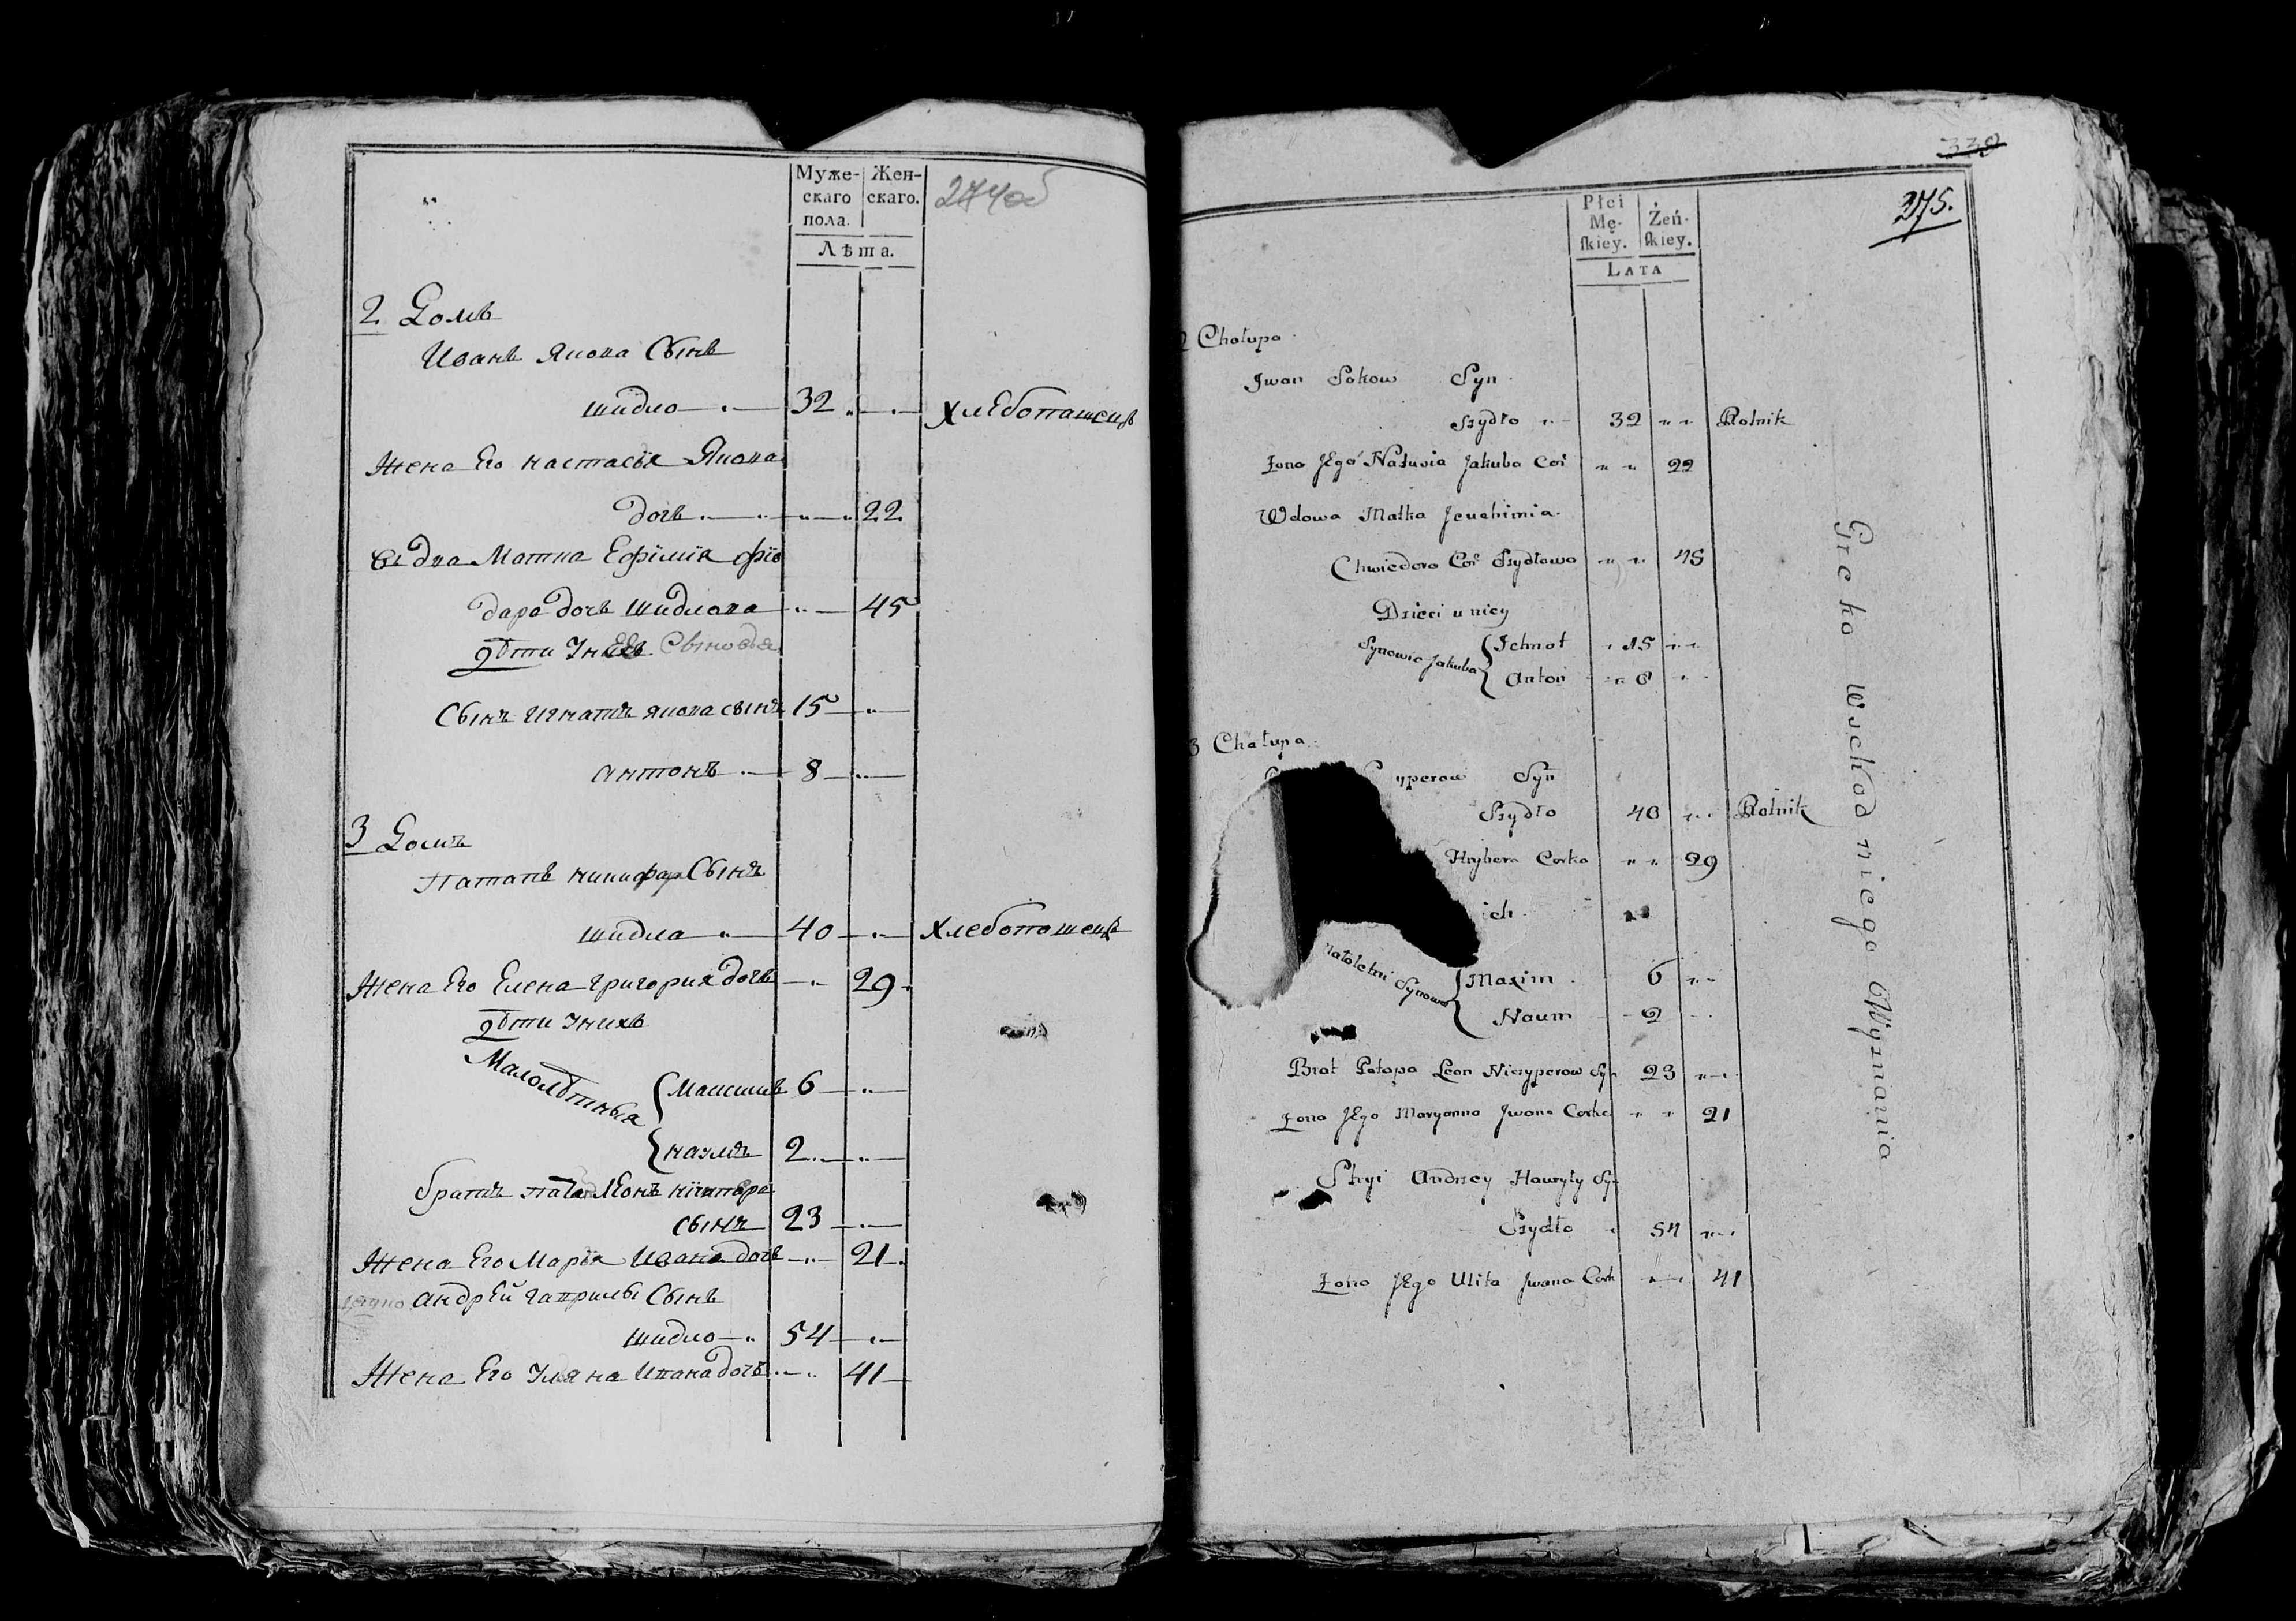 Муже-
скаго
пола.
Жен-
скаго.
Лѣта.
274об
2 Домъ
Иванъ Якова Сынъ
шидло 32 хлебопашецъ
Жена Его настасїя Якова
дочь 22
Вдва Матка Ефїмїя фїо
дара дочь шидлова 45
дѣти У нихъ Сыновья
Сынъ игнатъ якова сынъ 15
антонъ 8
3 Домъ
Патапъ никифара Сынъ
шидла 40 хлебопошецъ
Жена Его Елена григория дочь 29
дѣти Унихъ
Малолѣтныя
Максимъ 6
наумъ 2
братъ Леонъ
сынъ 23
Жена Его Марїя Ивана дочь 21
андрЕй гаврилы Сынъ
шидло 54
Жена Его Уляна Ивана дочь 41
330
275.
Płci
Mę-
skiey.
Żeń-
skiey.
LATA
2 Chałupa
Jwan Jakow Syn
Szydło 32 Rolnik
Żona JEgo Nastusia Jakuba Cor 22
Wdowa Matka Jeuchimia
Chwiedora Cor Szydłowa 45
Dzieci u niey
Synowie Jakuba
Ichnat 15
Anton 8
3 Chałupa
yperow Syn
Szydło 40 Rolnik
Hryhora Corka 29
ich
małoletni Synowie
Maxim 6
Naum 2
Brat Patapa Leon Niczyperow Syn 23
Żona JEgo Maryanna Jwana Corka 21
Stryi Andrzey Hawryły Syn
Szydło 54
Żona JEgo Ulita Jwana Cork 41
Grecko Wschodniego Wyznania